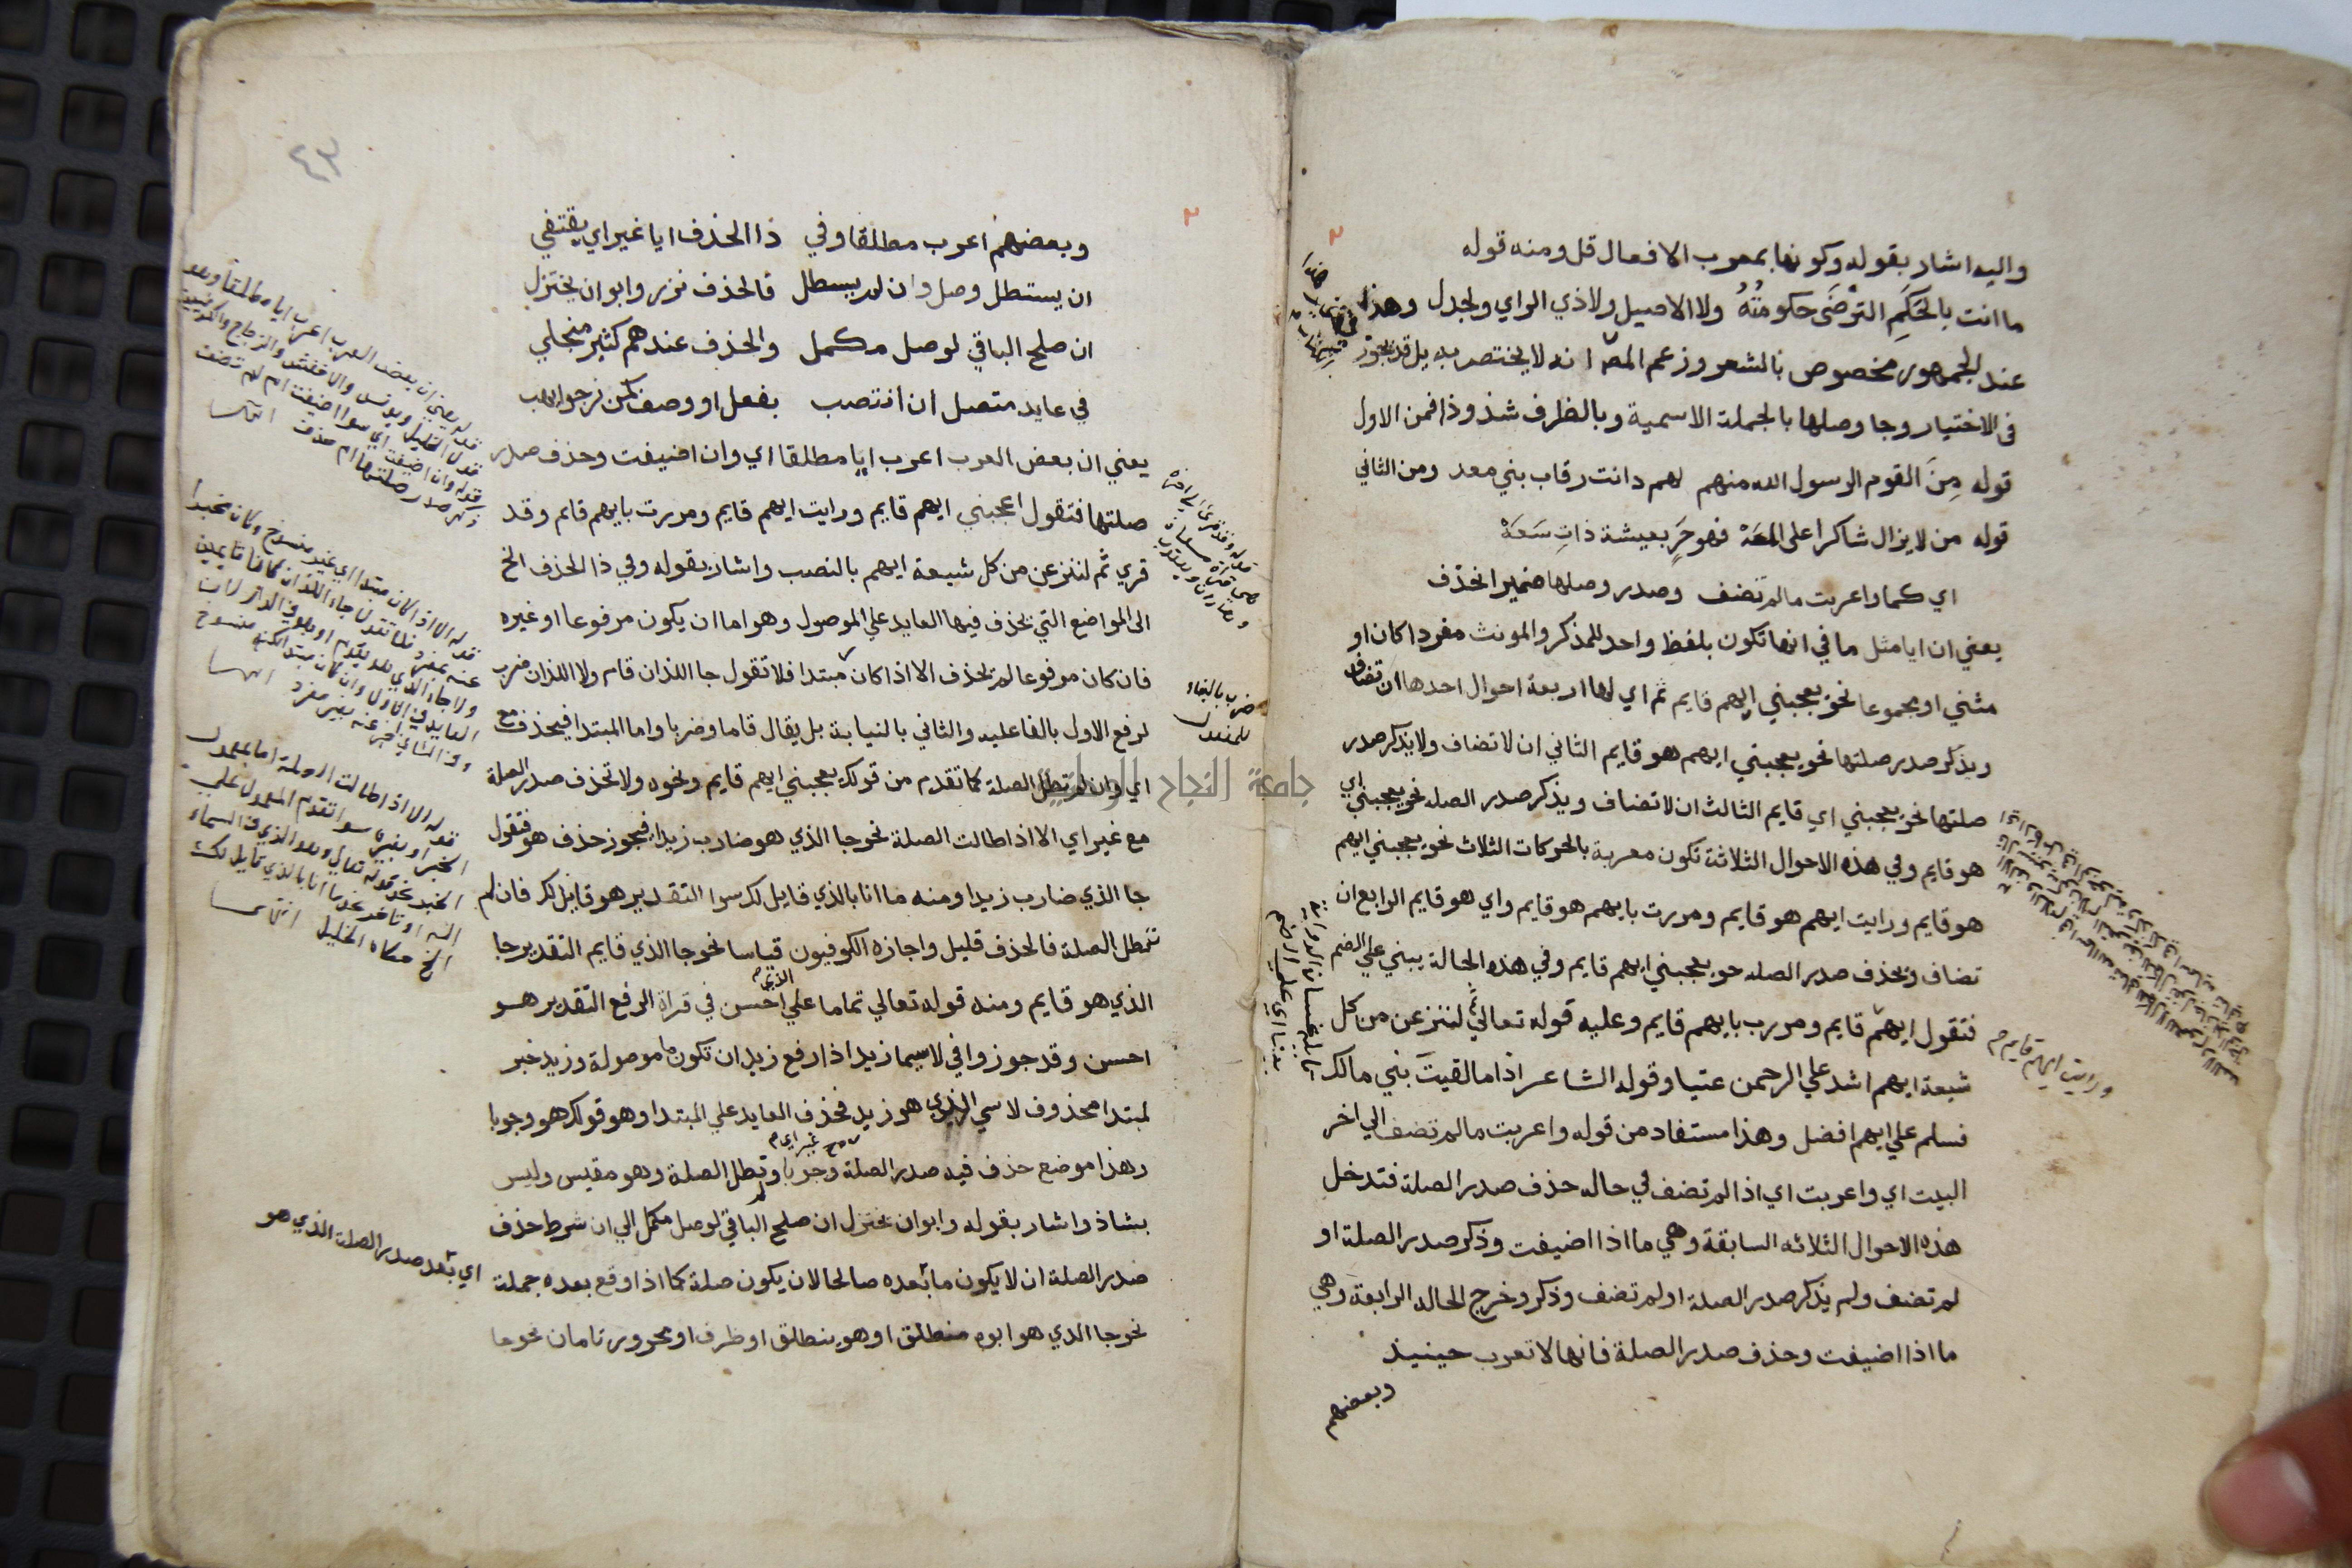 واليه اشار بقوله وكونها بمعرب الافعال قل ومنه قوله
ما انت بالحَكَمِ التُرضَى حكومتُهُ ولا الاصيل ولا ذي الراي والجدل وهذا
عند الجمهور مخصوص بالشعر وزعم المص انه لا يختص به بل قد يجوز
في الاختيار وجا وصلها بالجملة الاسمية وبالظرف شذوذا فمن الاول
قوله مِنَ القوم الرسول الله منهم لهم دانت رقاب بني معد ومن الثاني
قوله من لا يزال شاكرا على المعَهْ فهو حَرٍ بعيشة ذاتِ سَعَهْ
اي كما واعربت ما لم تضف وصدر وصلها ضمير انحذف
يعني ان ايا مثل ما في انها تكون بلفظ واحد للمذكر والمونث مفردا كان او
مثني او مجموعا نحو يعجبني ايهم قايم ثم اي لها اربعة احوال احدها ان تضاف
ويذكر صدر صلتها نحو يعجبني ايهم هو قايم الثاني ان لا تضاف ولا يذكر صدر
صلتها نحو يعجبني اي قايم الثالث ان لا تضاف ويذكر صدر الصله نحو يعجبني اي
هو قايم وفي هذه الاحوال الثلاثة تكون معربة بالحركات الثلاث نحو يعجبني ايهم
هو قايم ورايت ايهم هو قايم ومررت بايهم هو قايم واي هو قايم الرابع ان
تضاف ويحذف صدر الصله نحو يعجبني ايهم قايم وفي هذه الحالة يبني علي الضم
فتقول ايهم قايم ومررت بايهم قايم وعليه قوله تعالي ثم لننزعن من كل
شيعة ايهم اشد علي الرحمن عتيا وقوله الشاعر اذا ما لقيتَ بني مالك
فسلم علي ايهم افضل وهذا مستفاد من قوله واعربت ما لم تضف الي اخر
البيت اي واعربت اي اذا لم تضف في حاله حذف صدر الصلة فتدخل
هذه الاحوال الثلاثه السابقة وهي ما اذا اضيفت وذكر صدر الصلة او
لم تضف ولم يذكر صدر الصلة او لم تضف وذكر وخرج الحاله الرابعة وهي
ما اذا اضيفت وحذف صدر الصلة فانها لا تعرب حينيذ
وبعضهم
ورايت ايهم قايم
٤٣
وبعضهم اعرب مطلقا وفي ذا الحذف ايا غير اي يقتفي
ان يستطل وصل وان لم يستطل فالحذف نزر وابوا ان يختزل
ان صلح الباقي لوصل مكمل والحذف عندهم كثير منجلي
في عايد متصل ان انتصب بفعل او وصف كمن نرجو يهب
يعني ان بعض العرب اعرب ايا مطلقا اي وان اضيفت وحذف صدر
صلتها فتقول اعجبني ايهم قايم ورايت ايهم قايم ومررت بايهم قايم وقد
قري ثم لننزعن من كل شيعة ايهم بالنصب واشار بقوله وفي ذا الحذف الخ
الى المواضع التي يحذف فيها العايد علي الموصول وهو اما ان يكون مرفوعا او غيره
فان كان مرفوعا لم يحذف الا اذا كان مبتدا فلا تقول جا اللذان قام ولا اللذان ضرب
لرفع الاول بالفاعليه والثاني بالنيابة بل يقال قاما وضربا واما المبتدا فيحذف مع
اي وان لم تطل الصلة كما تقدم من قولك يعجبني ايهم قايم ونحوه ولا تحذف صدر الصلة
مع غير اي الا اذا طالت الصلة نحو جا الذي هو ضارب زيدا فيجوز حذف هو فتقول
جا الذي ضارب زيدا ومنه ما انا بالذي قايل لك سوا التقدير هو قايل لك فان لم
تطل الصلة فالحذف قليل واجازه الكوفيون قياسا نحو جا الذي قايم التقدير جا
الذي هو قايم ومنه قوله تعالي تماما علي الذي احسن في قراة الرفع التقدير هو
احسن وقد جوزوا في لا سيما زيد اذا رفع زيد ان تكون ما موصولة وزيد خبر
لمبتدا محذوف لا سي الذي هو زيد فحذف العايد علي المبتدا وهو قولك هو وجوبا
وهذا موضع حذف فيه صدر الصلة مع غير اي وجوبا ولم تطل الصلة وهو مقيس وليس
بشاذ واشار بقوله وابوا ان يختزل ان صلح الباقي لوصل مكمل الي ان شرط حذف
صدر الصلة ان لا يكون ما بعده صالحا لان يكون صلة كما اذا وقع بعده جملة
نحو جا الذي هو ابوه منطلق او هو ينطلق او ظرف او مجرور تامان نحو جا
ضرب بالبناء
للمفعول
قوله يعني ان بعض العرب اعرب ايا مطلقا وهو
قول الخليل ويونس والاخفش والزجاج والكوفيين
قوله وان اضيفت اي سوا اضيفت ام لم تضف
ذكر صدر صلتها ام حذف
قوله الا اذا كان مبتدا اي غير منسوخ وكان مخبرا
عنه بمفرد فلا تقول جاء اللذان كانا قايمين
ولا جاء الذي هو يقوم او هو في الدار لان
قوله الا اذا طالت الصلة اما بمعمول
الخبر او بغيره سوا تقدم المعمول علي
الخبر نحو قوله تعالي وهو الذي في السماء
اله او تاخر نحو ما انا بالذي قايل لك
الخ حكاه الخليل
اي بعد صدر الصلة الذي هو
جامعة النجاح الوطنية